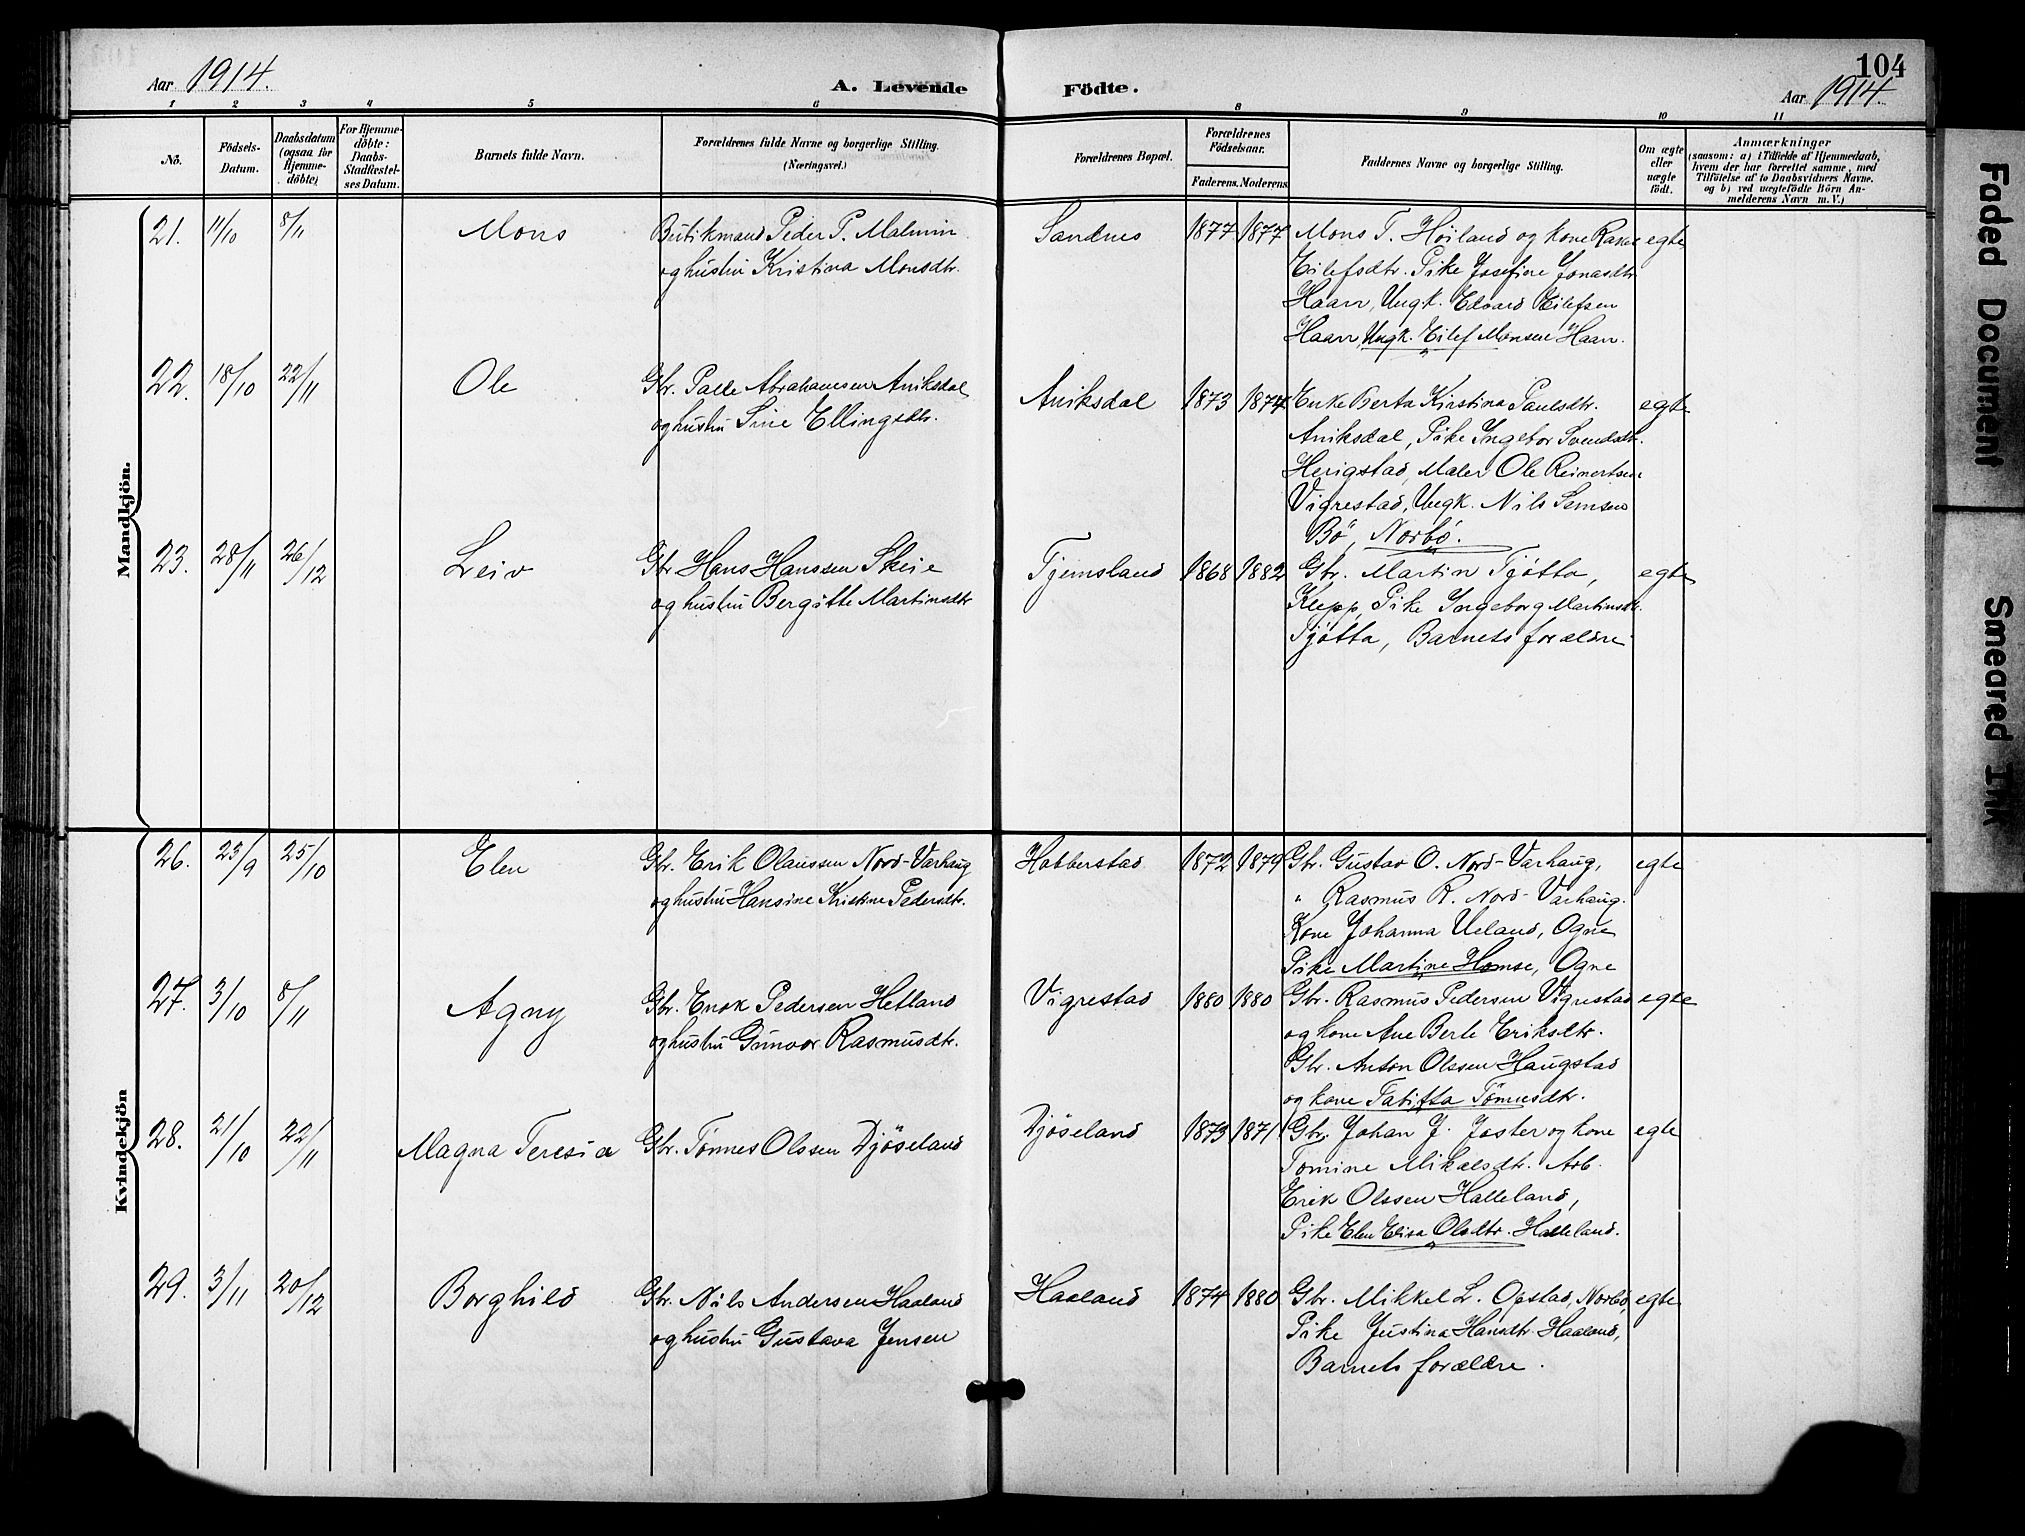 104
Aar 1914.
A. Levende
Födte.
Aar 1914.
1 2 3 4 5 6 8 9 10 11
No.
Födsels-
Datum.
Daabsdatum
(ogsaa for
Hjemme-
döbte)
For Hjemme-
döbte:
Daabs-
Stadfæstel-
ses Datum.
Barnets fulde Navn.
Forældrenes fulde Navne og borgerlige Stilling.
(Næringsvei.)
Forældrenes Bopæl.
Forældrenes
Födselsaar.
Faderens. Moderens
Faddernes Navne og borgerlige Stilling.
Om ægte
eller
uægte
født.
Anmærkninger
(saasom: a) i Tilfælde af Hjemmedaab,
hvem der har forrettet samme, med
Tilføielse af to Daabsvidners Navne.
og b) ved uægtefödte Börn An-
melderens Navn m. V.)
Mandkjön.
21. 11/10 8/11 Mons
Butikmand Peder P. Malmin
og hustru Kristina Monsdtr.
Sandnes 1877 1877
Mons T. Höiland og kone Rasm egte
Eilefsdtr. Pike Josefine Jonasdtr
Haarr, Ungk. Edvard Eilefsen
Haarr, Ungk. Eilef Monsen Haarr.
22. 18/10 22/11 Ole
Gbr. Palle Abrahamsen Aniksdal
og hustru Sine Ellingsdtr.
Aniksdal 1873 1874
Enke Berta Kirstina Paulsdtr. egte
Aniksdal, Pike Ingebor Svendsdtr.
Herigstad, Maler Ole Reinertsen
Vigrestad, Ungk. Nils Semsen
Bö, Norbö.
23. 28/11 26/12 Leiv
Gbr Hans Hanssen Skeie
og hustru Bergitte Martinsdtr
Tjemsland 1868 1882
Gbr. Martin Tjøtta, egte
Klepp, Pike Ingeborg Martinsdtr.
Tjøtta, Barnets forældre
Kvindekjön
26. 23/9 25/10 Elen
Gbr. Erik Olaussen Nord-Varhaug
og hustru Hansine Kristine Pedersdtr.
Hobberstad 1872 1879
Gbr. Gustav O. Nord-Varhaug, egte
" Rasmus R. Nord-Varhaug.
Kone Johanna Ueland, Ogne
Pike Martine Homse, Ogne
27. 3/10 8/11 Agny
Gbr. Enok Pedersen Hetland
og hustru Gunvor Rasmusdtr.
Vigrestad 1880 1880
Gbr. Rasmus Pedersen Vigrestad egte
og kone Ane Berte Eriksdtr.
Gbr. Anton Olssen Haugstad
og kone Tabitta Tönnesdtr.
28. 21/10 22/11 Magna Teresia
Gbr. Tönnes Olssen Djöseland
Djöseland 1873 1871
Gbr. Johan J. Joster og kone egte
Tomine Mikalsdtr. Arb.
Erik Olssen Halleland,
Pike Elen Elisa Olsdtr. Halleland.
29. 3/11 20/12 Borghild
Gbr. Nils Andersen Haaland
og hustru Gustava Jensen
Haaland 1874 1880
Gbr. Mikkel L. Opstad, Norbö, egte
Pike Justina Hansdtr. Haaland,
Barnets forældre.
Faded Document
Smeared Ink